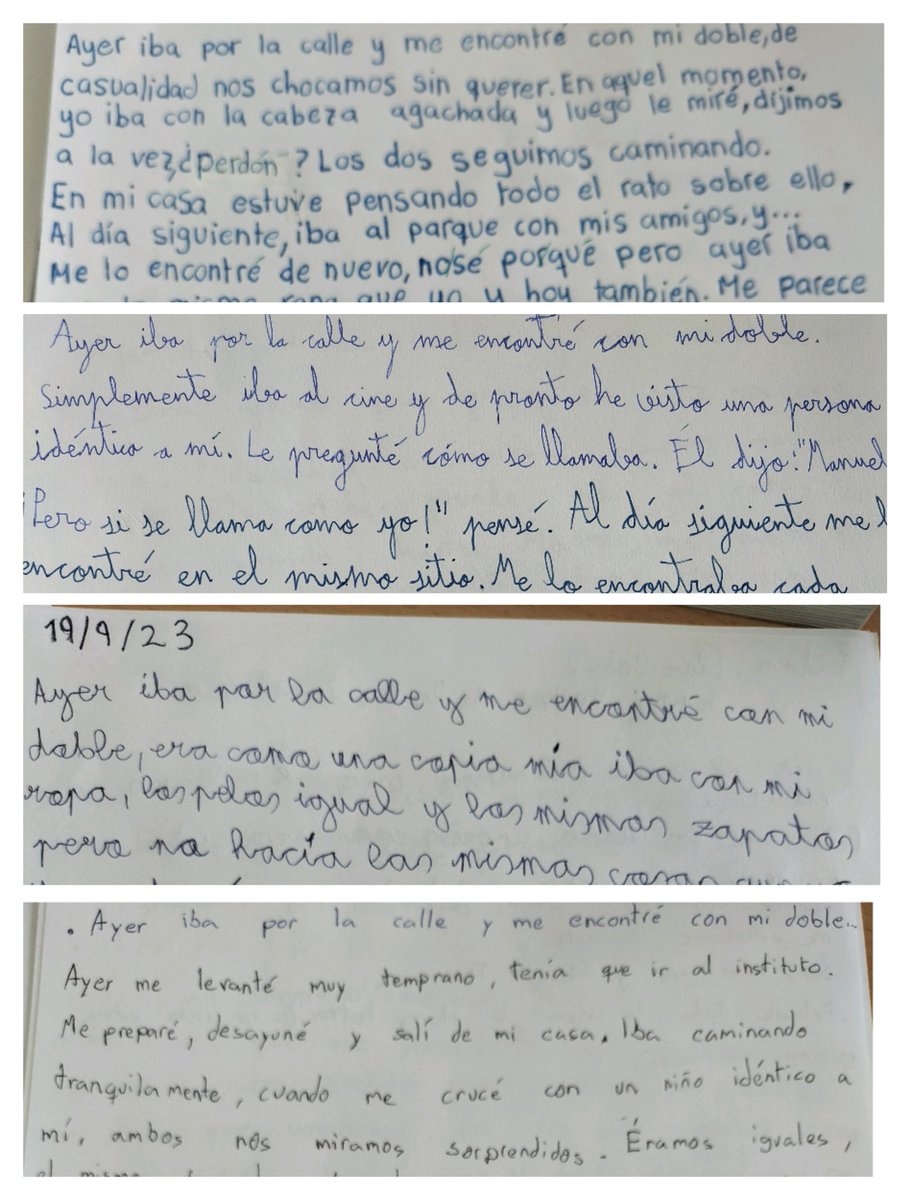 Ayer iba por la calle y me encontré con mi doble, de
casualidad nos chocamos sin querer. En aquel momento,
yo iba con la cabeza agachada y luego le miré, dijimos
a la vez, ¿perdón? Los dos seguimos caminando.
En mi casa estuve pensando todo el rato sobre ello,
Al día siguiente, iba al parque con mis amigos, y...
Me lo encontré de nuevo, nosé porqué pero ayer iba
que yo y hoy también. Me parece
Ayer iba por la calle y me encontré con mi doble.
Simplemente iba al cine y de pronto he visto una persona
idéntica a mí. Le pregunté cómo se llamaba. Él dijo: "Manuel
¡Pero si se llama como yo!" pensé. Al día siguiente me l
encontré en el mismo sitio. Me lo encontraba cada
19/9/23
Ayer iba por la calle y me encontré con mi
doble, era como una copia mía iba con mi
ropa, los pelos igual y los mismos zapatos
pero no hacía las mismas cosas
. Ayer iba por la calle y me encontré con mi doble...
Ayer me levanté muy temprano, tenía que ir al instituto.
Me preparé, desayuné y salí de mi casa. Iba caminando
tranquilamente, cuando me crucé con un niño idéntico a
mí, ambos nos miramos sorprendidos. Éramos iguales,